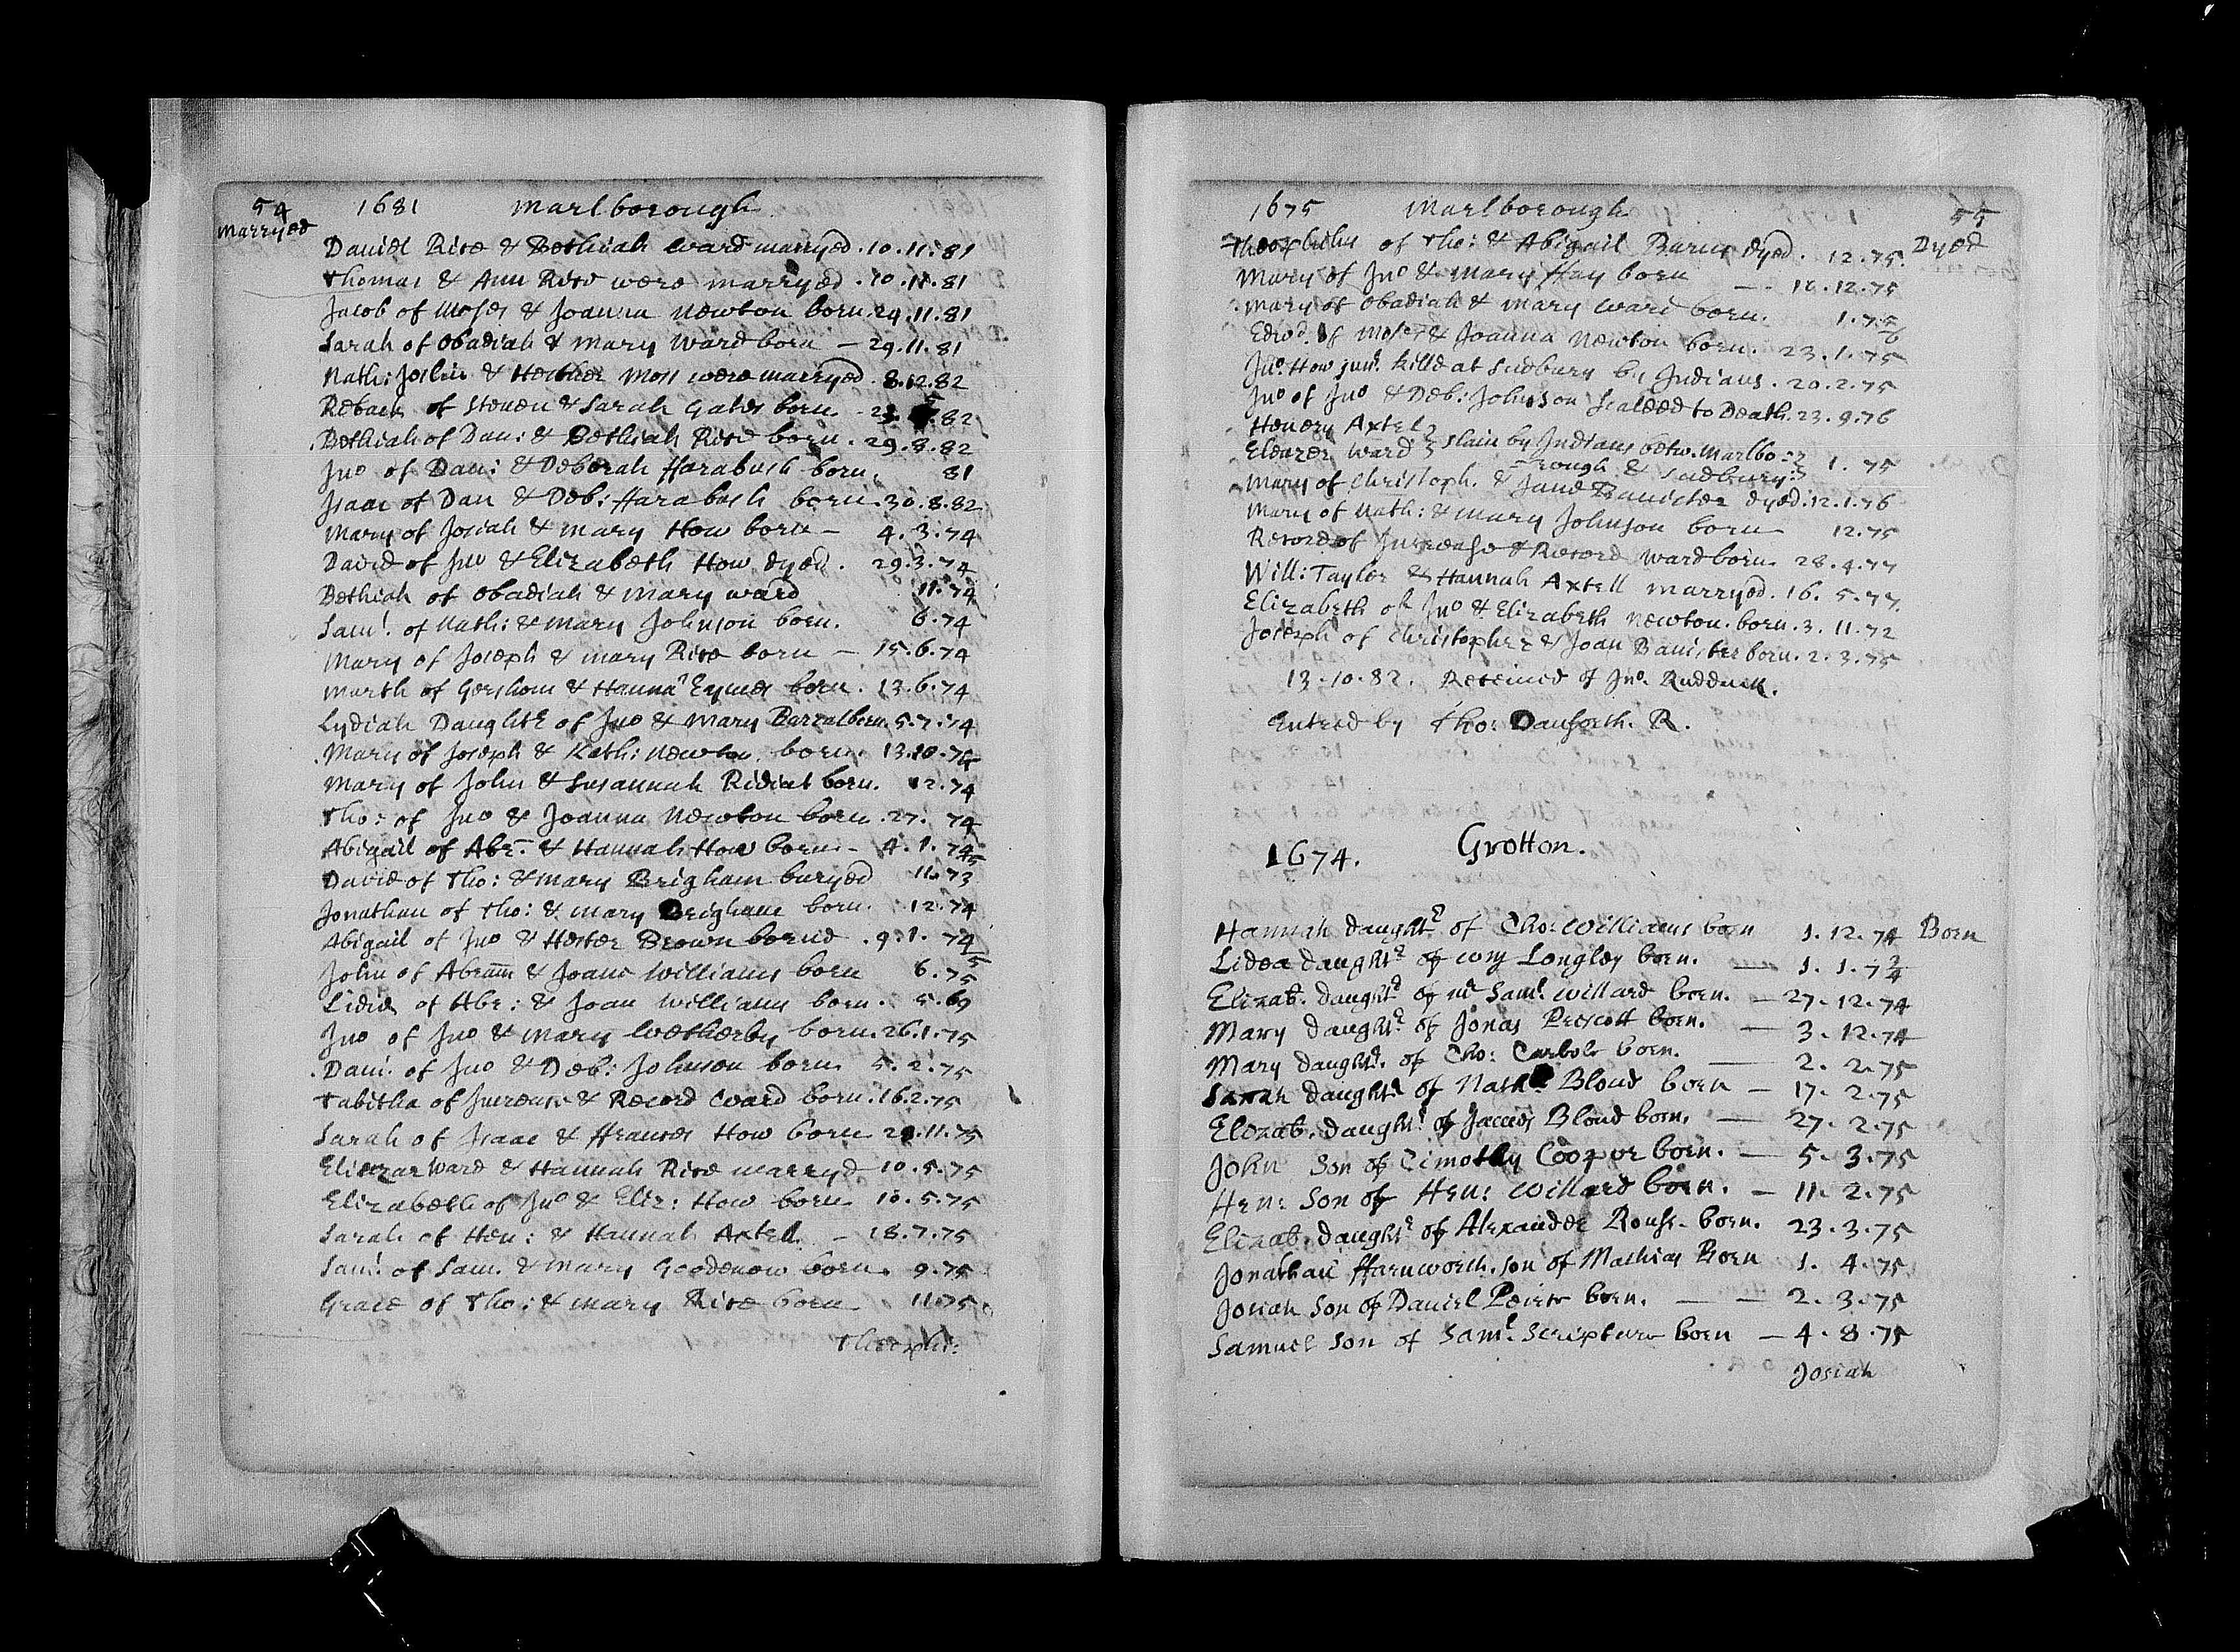 54 1681 Marlborough
Marryed
Daniel Rice & Bethiah Ward marryed. 10. 11. 81
Thomas & Ann Rice were marryed. 10. 11. 81
Jacob of Moses & Joanna Newton born. 29. 11. 81
Sarah of Obadiah & Mary Ward born — 29. 11. 81
Nath: Joslin & Hester Moss were marryed. 8. 12. 82
of Steven & Sarah Gates born. 82
Bethiah of Dan: & Bethiah Rice born. 29. 8. 82
Jno of Dan: & Deborah ffarabush born. 81
Isaac of Dan & Deb: ffarabush born. 30. 8. 82
Mary of Josiah & Mary How born — 4. 3. 74
David of Jno & Elizabeth How dyed. 29. 3. 74
Bethiah of Obadiah & Mary Ward 11. 74
Saml. of Nath: & Mary Johnson born. 6. 74
Mary of Joseph & Mary Rice born — 15. 6. 74
Marth of Gershom & Hanna Eymes born. 13. 6. 74
Lydiah Daughtr of Jno & Mary born 5. 7. 74
Mary of Joseph & Kath: Newton born. 13. 10. 75
Mary of John & Susannah Rediat born. 12. 74
Tho: of Jno & Joanna Newton born. 27. 74
Abigail of Abr. & Hannah How born. — 4. 1. 74/75
David of Tho: & Mary Brigham buryed 11. 73
Jonathan of Tho: & Mary Brigham born. 12. 74
Abigail of Jno & Hester Brown borne. 9. 1. 74/5
John of Abram & Joane Williams born 6. 75
Lidia of Abr: & Joan Williams born. 5. 69
Jno of Jno & Mary Wetherby born. 26. 1. 75
Dani: of Jno & Deb: Johnson born. 5. 2. 75
Tabitha of Increase & Record Ward born. 16. 2. 75
Sarah of Isaac & ffrances How born 11. 75
Eliezar Ward & Hannah Rice marryd 10. 5. 75
Elizabeth of Jno & Eliz: How born 10. 5. 75
Sarah of Hen: & Hannah Axtel — 18. 7. 75
Saml of Sam. & Mary Goodenow born. 9. 75
Grace of Tho: & Mary Rice born 11. 75
Theophi:
1675 Marlborough 55
Theophilus of Tho: & Abigail Barns dyed. 12. 75. Dyed
Mary of Jno & Mary ffay born — 12. 75
Mary of Obadiah & Mary Ward born. 1. 75/6
Edwd. of Moses & Joanna Newton born. 23. 1. 75
Jno. How junr. killd at Sudbury by Indians. 20. 2. 75
Jno of Jno & Deb: Johnson Scalded to Death. 23. 9. 76
Henery Axtel
Eleazer Ward } slain by Indians betw. Marlbo: 1. 75
=rough & Sudbury:
Mary of Christoph. & Jane Banister dyed. 12. 1. 76
Mary of Nath: & Mary Johnson born 12. 75
Record of Increase & Record Ward born. 28. 4. 77
Will: Taylor & Hannah Axtell marryed. 16. 5. 77.
Elizabeth of Jno & Elizabeth Newton born. 3. 11. 72
Joseph of Christopher & Joan Banister born. 2. 3. 75
13. 10. 82. Received of Jno. Rudduck.
Entred by Tho: Danforth. R.
1674. Grotton.
Hannah daughtr of Tho: Williams born 1. 12. 74 Born
Lidea daughtr of Wm Longley born. — 1. 1. 73/4
Elizab. daughtr of mr Saml. Willard born. — 27. 12. 74
Mary daughtr of Jonas Prescott born. — 3. 12. 74
Mary daughtr. of Tho: born. — 2. 2. 75
Sarah daughtr of Nathl Blood born — 17. 2. 75
Elizab. daughtr of James Blood born. — 27. 2. 75
John Son of Timothy Cooper born. — 5. 3. 75
Hen: Son of Hen: Willard born. — 11. 2. 75
Elizab. daughtr of Alexander Rouse born. 23. 3. 75
Jonathan ffarnworth. son of Mathias Born 1. 4. 75
Josiah Son of Daniel Peirce born. — — 2. 3. 75
Samuel son of Saml. Scripture born — 4. 8. 75
Josiah